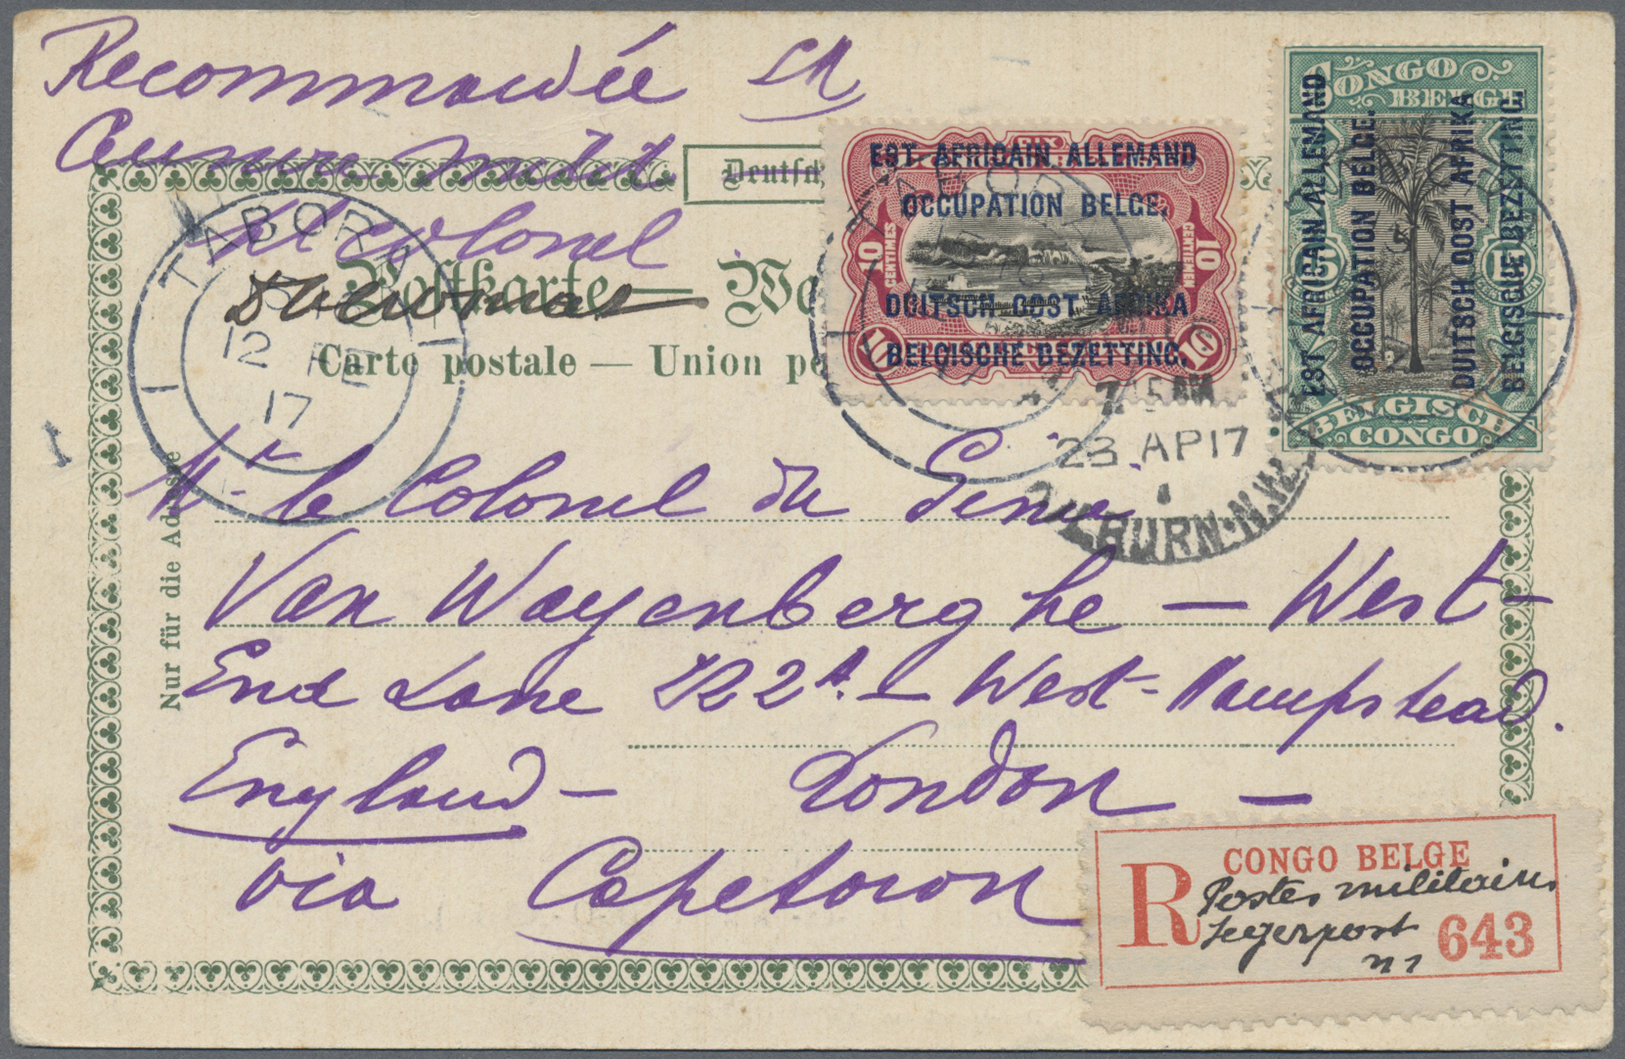 Recommandée
Censure milit
Lt Colonel
Thomas
Deutsch
Postkarte —
Carte postale — Union po
Nur für die Adresse
TABORA
12 FE
17
EST AFRICAIN ALLEMAND
OCCUPATION BELGE.
DUITSCH OOST AFRIKA
BELGISCHE BEZETTING.
10 CENTIMES
10 CENTIEMEN
CONGO
BELGE
EST AFRICAIN ALLEMAND
OCCUPATION BELGE.
DUITSCH OOST AFRIKA
BELGISCHE BEZETTING.
BELGISCH
CONGO
7.15 AM
23 AP 17
KILBURN·N.W.
Mr le Colonel du Genie
Van Wayenberghe — West-
End Lane 122A. — West-Hampstead.
England — London —
via Capetown
R
CONGO BELGE
Postes militaires
Legerpost
643